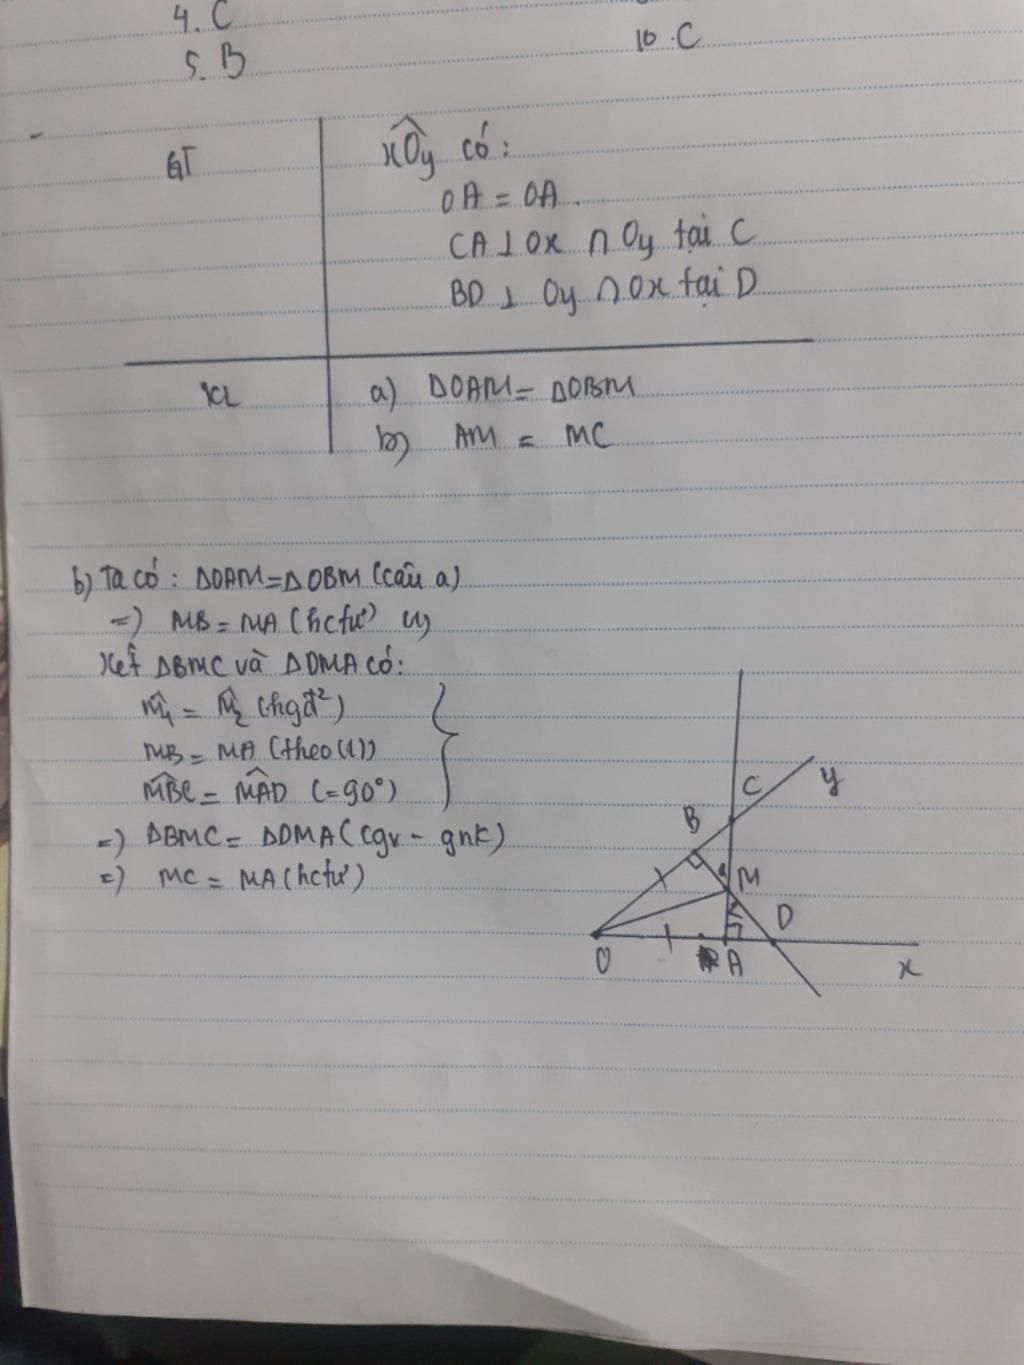 4. C
5. B
10. C
GT
xÔy có:
OA = OA.
CA ⊥ Ox ∩ Oy tại C
BD ⊥ Oy ∩ Ox tại D
KL
a) ΔOAM = ΔOBM
b) AM = MC
b) Ta có: ΔOAM = ΔOBM (câu a)
=) MB = MA (hctư) (1)
Xét ΔBMC và ΔDMA có:
M̂1 = M̂2 (hgđ²)
MB = MA (theo (1))
M̂BC = M̂AD (=90°)
=) ΔBMC = ΔDMA (cgv - gnk)
=) MC = MA (hctư)
C
y
B
M
D
O
A
x